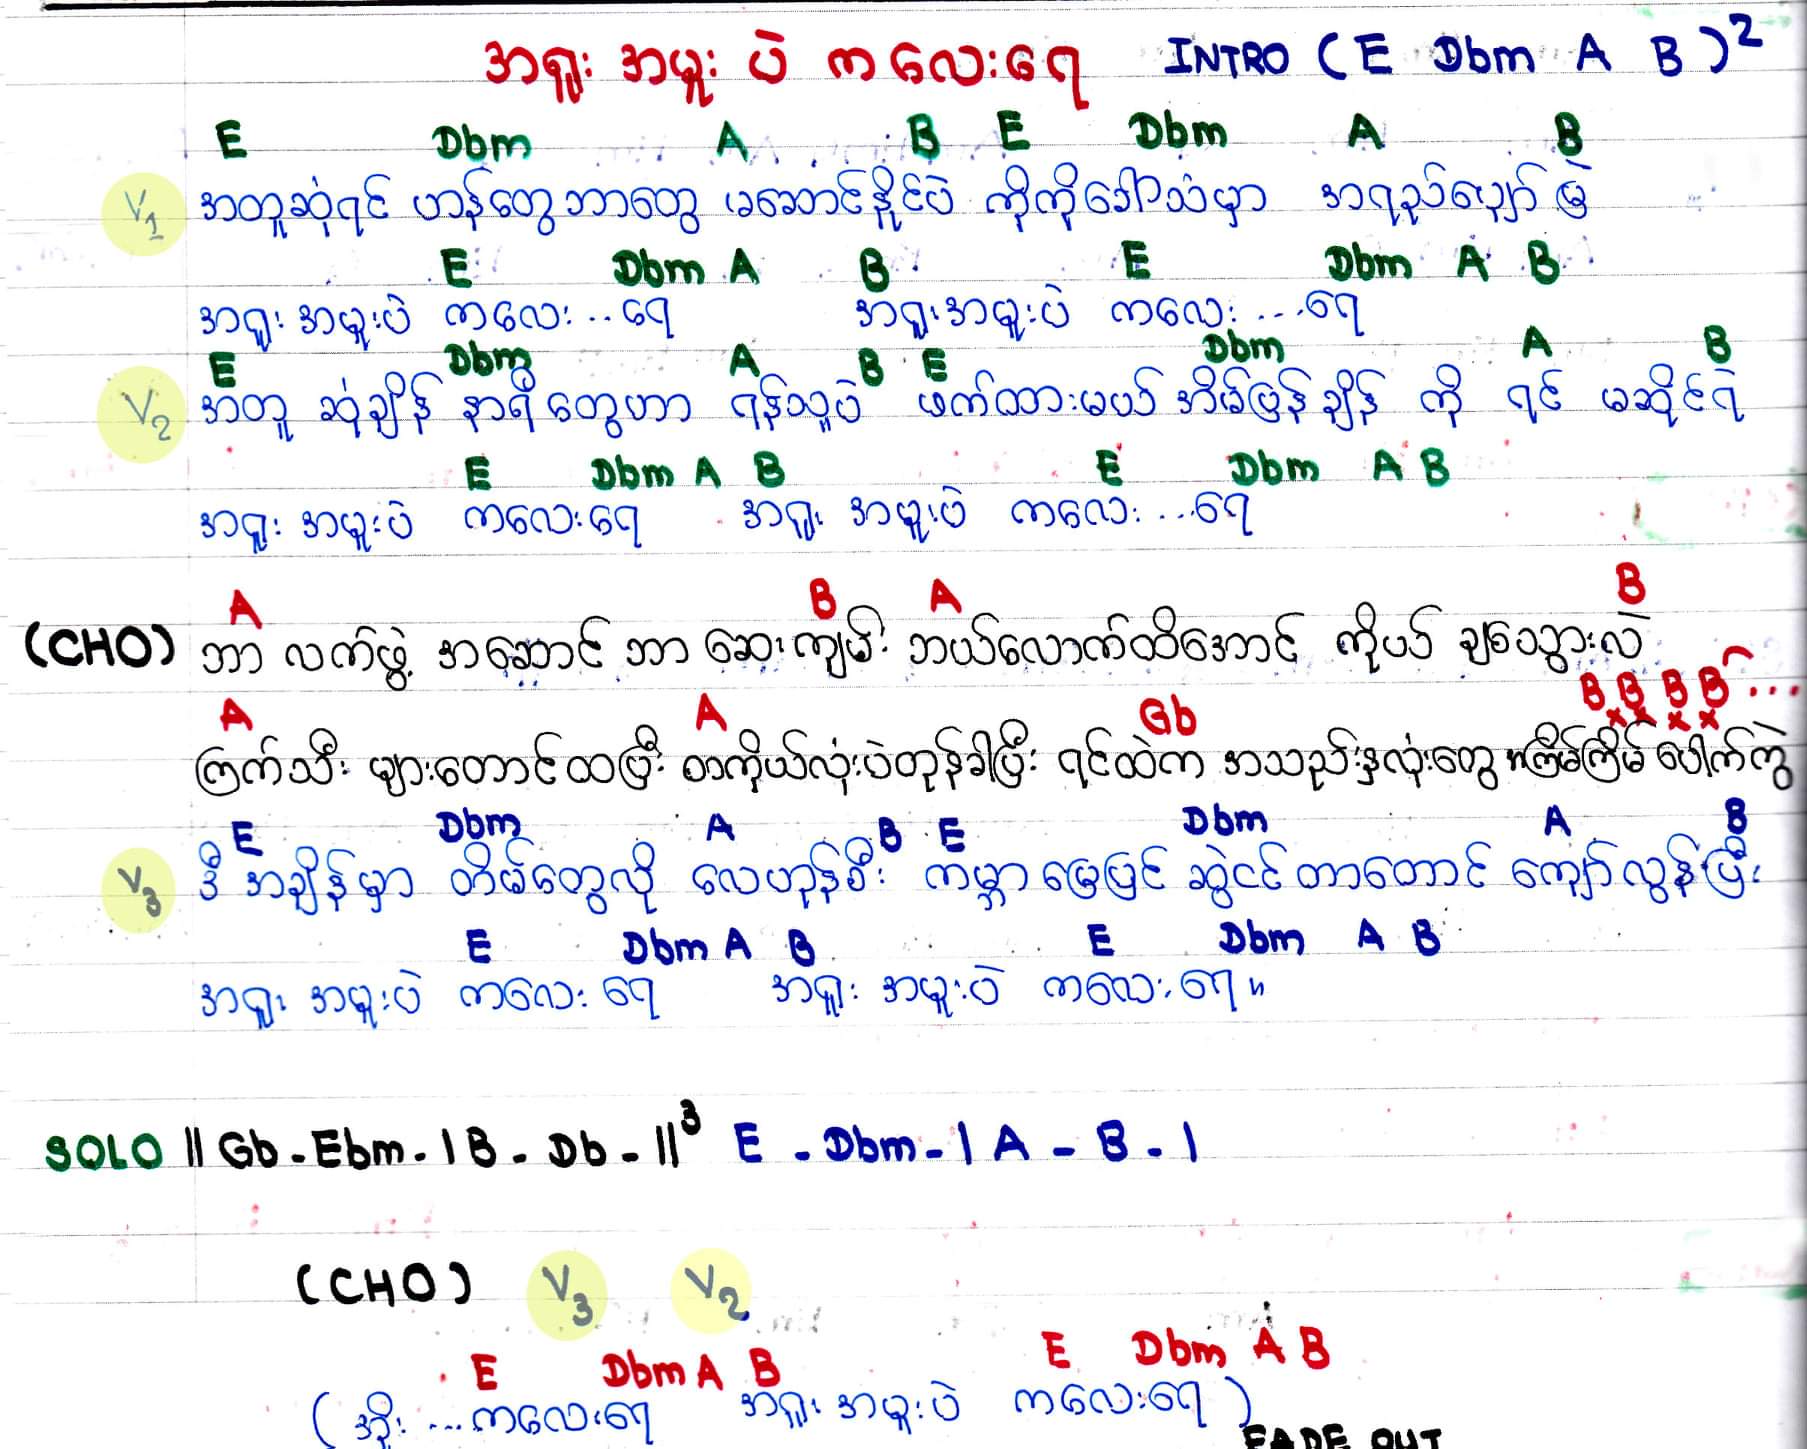 အရူး အမူး ပဲ ကလေးရေ INTRO ( E Dbm A B )2
E Dbm A B E Dbm A B
V1 အတူဆုံရင် ဟန်တွေဘာတွေ မဆောင်နိုင်ပဲ ကိုကိုခေါ်သံမှာ အရည်ပျော် မြဲ
E Dbm A B E Dbm A B
အရူး အမူးပဲ ကလေး...ရေ အရူးအမူးပဲ ကလေး...ရေ
E Dbm A B E Dbm A B
V2 အတူ ဆုံချိန် နာရီတွေဟာ ရန်သူပဲ ဖက်ထားမယ် အိမ်ပြန်ချိန် ကို ရင် မဆိုင်ရဲ
E Dbm A B E Dbm A B
အရူး အမူးပဲ ကလေးရေ အရူး အမူးပဲ ကလေး...ရေ
A B A B
(CHO) ဘာ လက်ဖွဲ့ အဆောင် ဘာ ဆေးကျမ်း ဘယ်လောက်ထိအောင် ကိုယ် ချစ်သွားလဲ
A A Gb B B B B ...
x x x x
ကြက်သီး များတောင်ထပြီး တကိုယ်လုံးပဲတုန်ခါပြီး ရင်ထဲက အသည်းနှလုံးတွေ အကြိမ်ကြိမ် ပေါက်ကွဲ
E Dbm A B E Dbm A B
V3 ဒီ အချိန်မှာ တိမ်တွေလို လေဟုန်စီး ကမ္ဘာ မြေပြင် ဆွဲငင် တာတောင် ကျော်လွန်ပြီး
E Dbm A B E Dbm A B
အရူး အမူးပဲ ကလေး ရေ အရူး အမူးပဲ ကလေး ရေ။
SOLO || Gb - Ebm - | B - Db - ||3 E - Dbm - | A - B - |
(CHO) V3 V2
E Dbm A B E Dbm A B
( အိုး ...ကလေးရေ အရူး အမူးပဲ ကလေးရေ )
FADE OUT